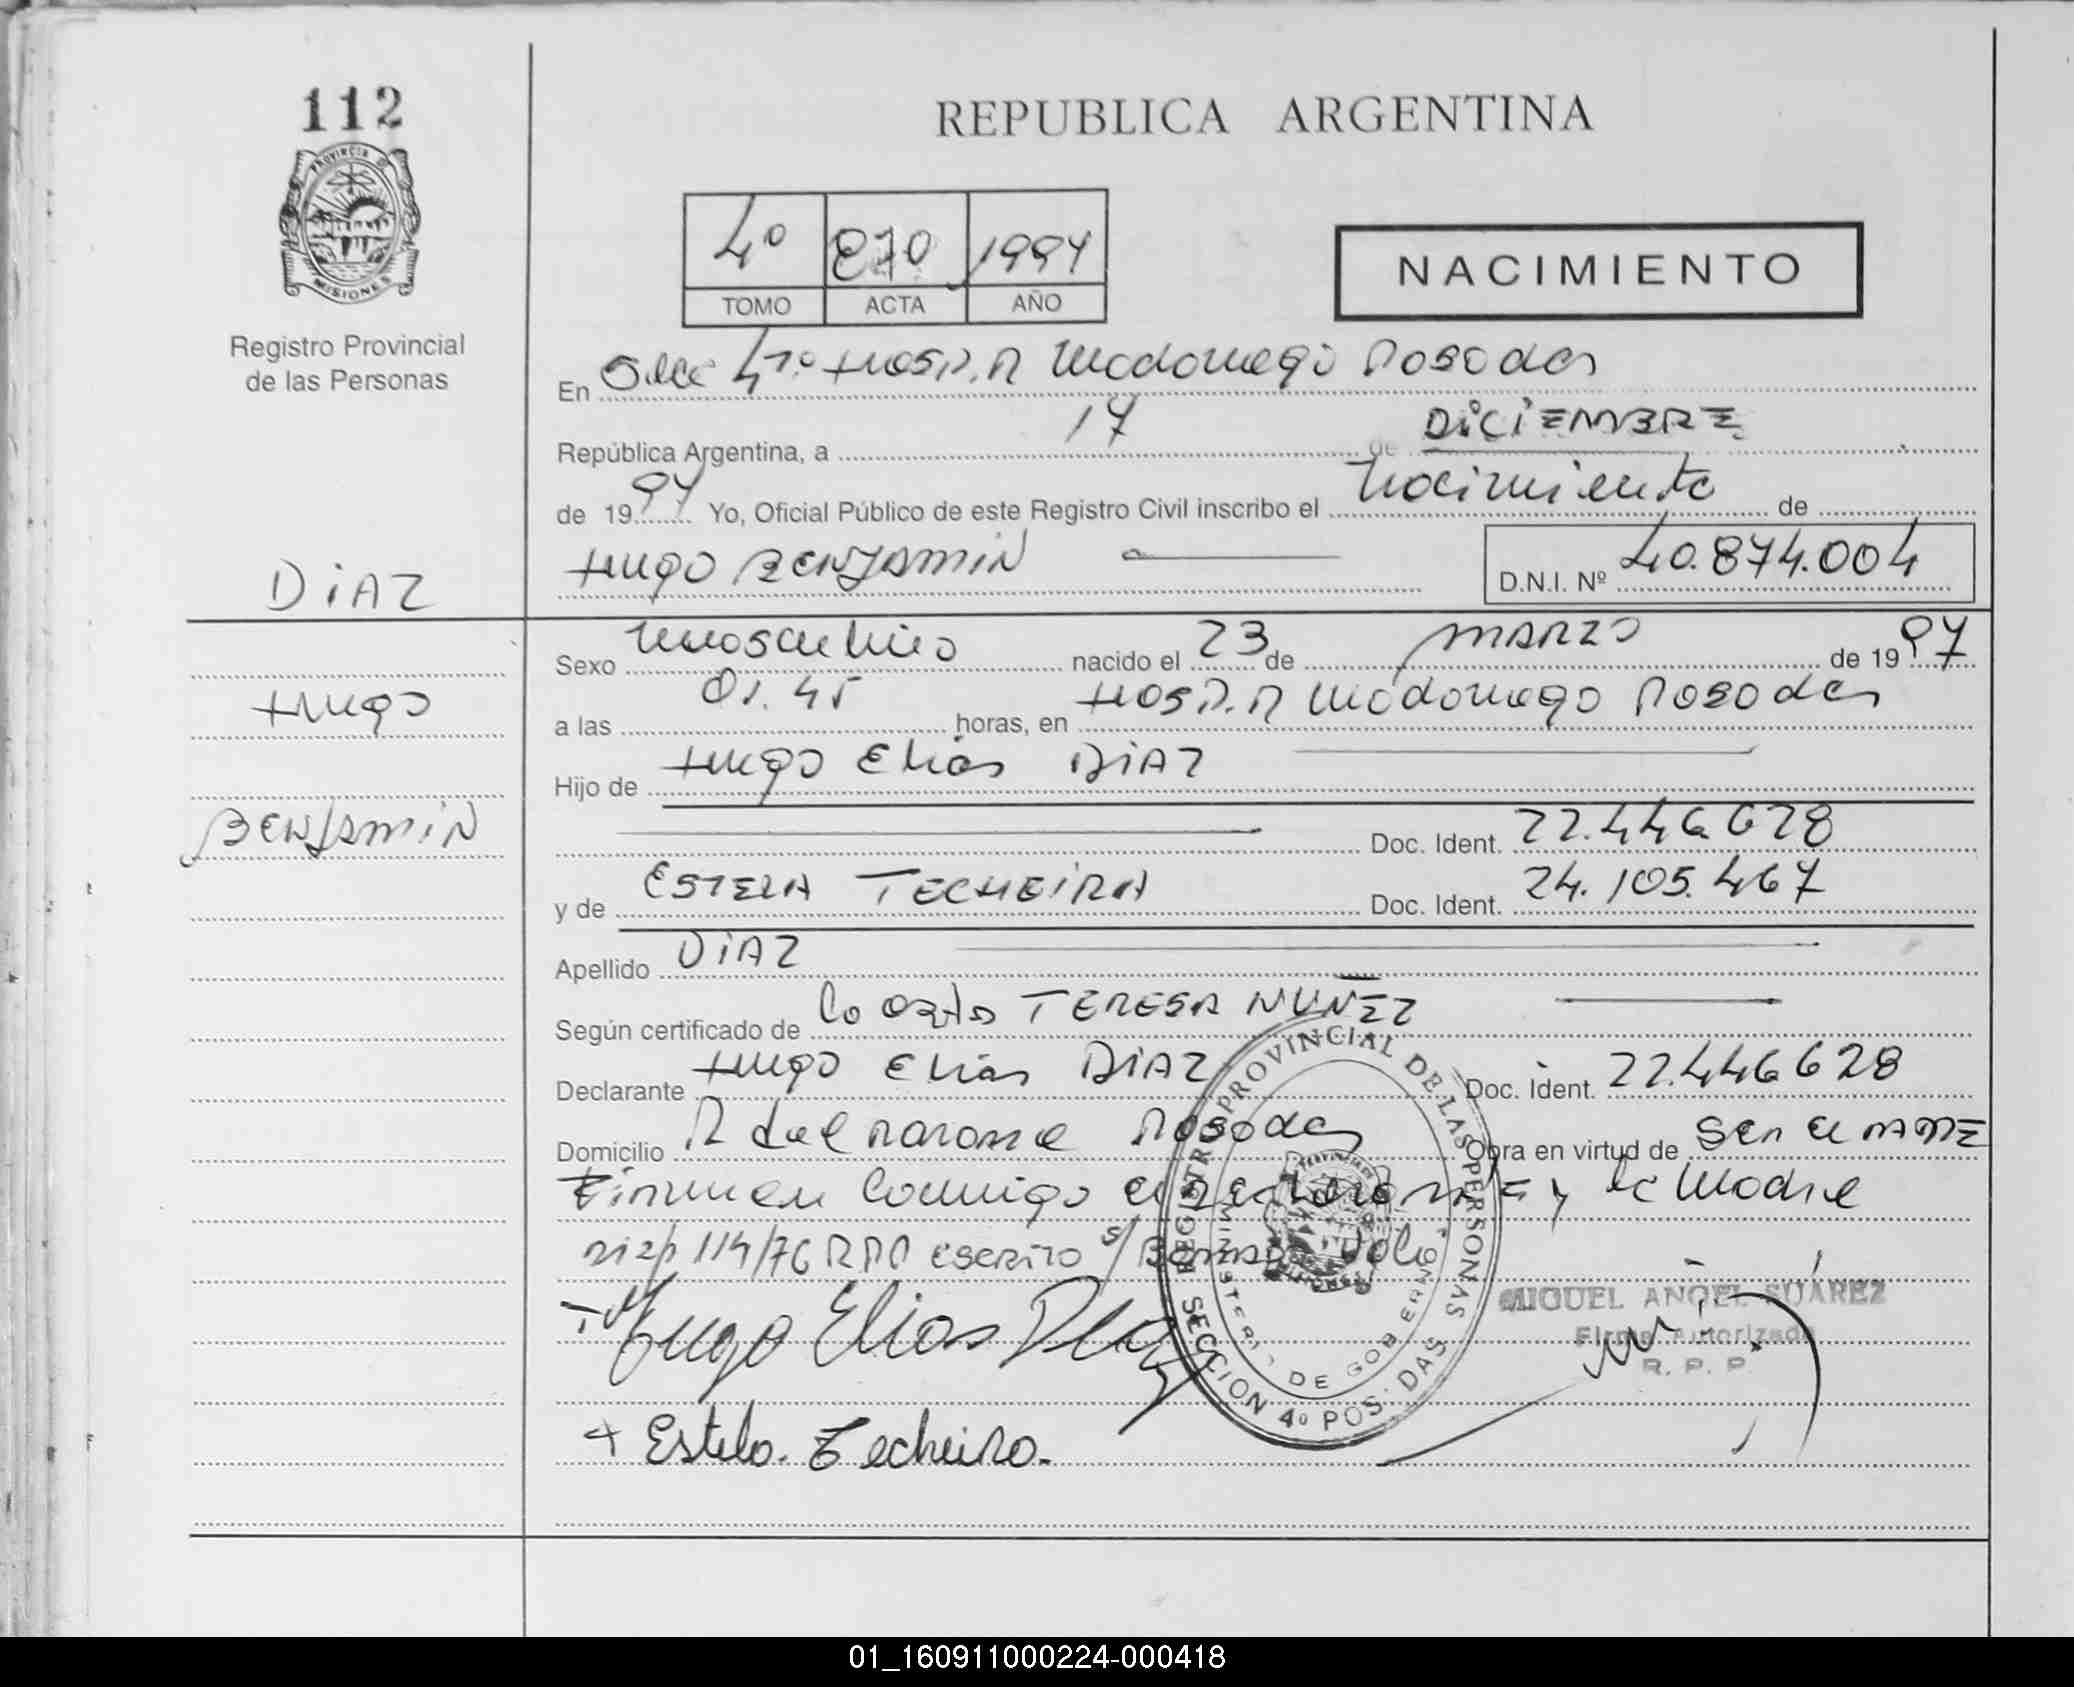 112
PROVINCIA D
MISIONES
Registro Provincial
de las Personas
REPUBLICA ARGENTINA
4º 870 1997
TOMO ACTA AÑO
NACIMIENTO
En Secc 4ta. HOSP. R Madariaga Posadas
República Argentina, a 17 de DICIEMBRE
de 1997 Yo, Oficial Público de este Registro Civil inscribo el Nacimiento de
HUGO BENJAMIN
D.N.I. Nº 40.874.004
DIAZ
HUGO
BENJAMIN
Sexo masculino nacido el 23 de MARZO de 1997
a las 01.45 horas, en HOSP. R Madariaga Posadas
Hijo de HUGO Elias DIAZ
Doc. Ident. 22.446628
y de ESTELA TECHEIRA Doc. Ident. 24.105.467
Apellido DIAZ
Según certificado de la Obsta TERESA NUÑEZ
Declarante HUGO Elias DIAZ Doc. Ident. 22.446628
Domicilio Posadas Obra en virtud de Ser el PADRE
Firman conmigo el y la Madre
114/76 RPP escrito s/
Hugo Elias Diaz
+ Estela. Techeira.
REGISTRO PROVINCIAL DE LAS PERSONAS
MINISTERIO DE GOBIERNO
SECCION 4º POSADAS
MIGUEL ANGEL SUÁREZ
Firma Autorizada
R. P. P.
01_160911000224-000418